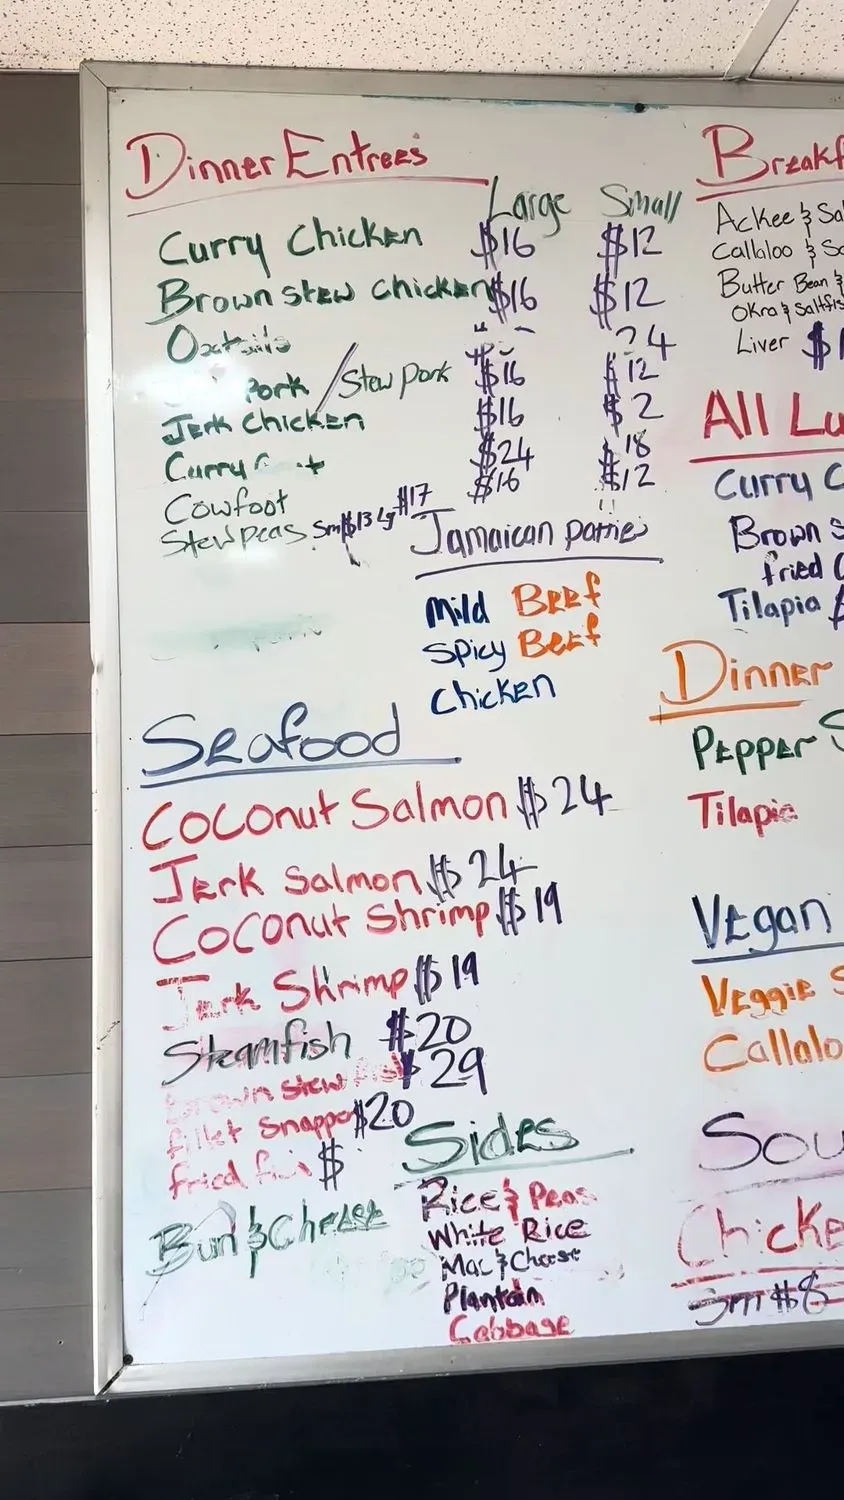 Dinner Entrees
Large Small
Curry Chicken $16 $12
Brown stew chicken $16 $12
24
Pork / Stew pork $16 $12
Jerk Chicken $16 $ 2
Curry $24 $18
Cowfoot $16 $12
Stew peas Sm $13 Lg $17
Jamaican patties
Mild Beef
Spicy Beef
Chicken
Seafood
Coconut Salmon $24
Jerk Salmon $24
Coconut Shrimp $19
Jerk Shrimp $19
Steamfish $20
Brown stew fish $29
fillet Snapper $20
fried $
Bun & Cheese
Sides
Rice & Peas
White Rice
Mac & Cheese
Plantain
Cabbage
Breakf
Ackee & Sa
Callaloo & Sa
Butter Bean &
Okra & Saltfis
Liver $1
All Lu
Curry C
Brown S
fried
Tilapia $
Dinner
Pepper S
Tilapia
Vegan
Veggie S
Callalo
Sou
Chicke
Sm $8